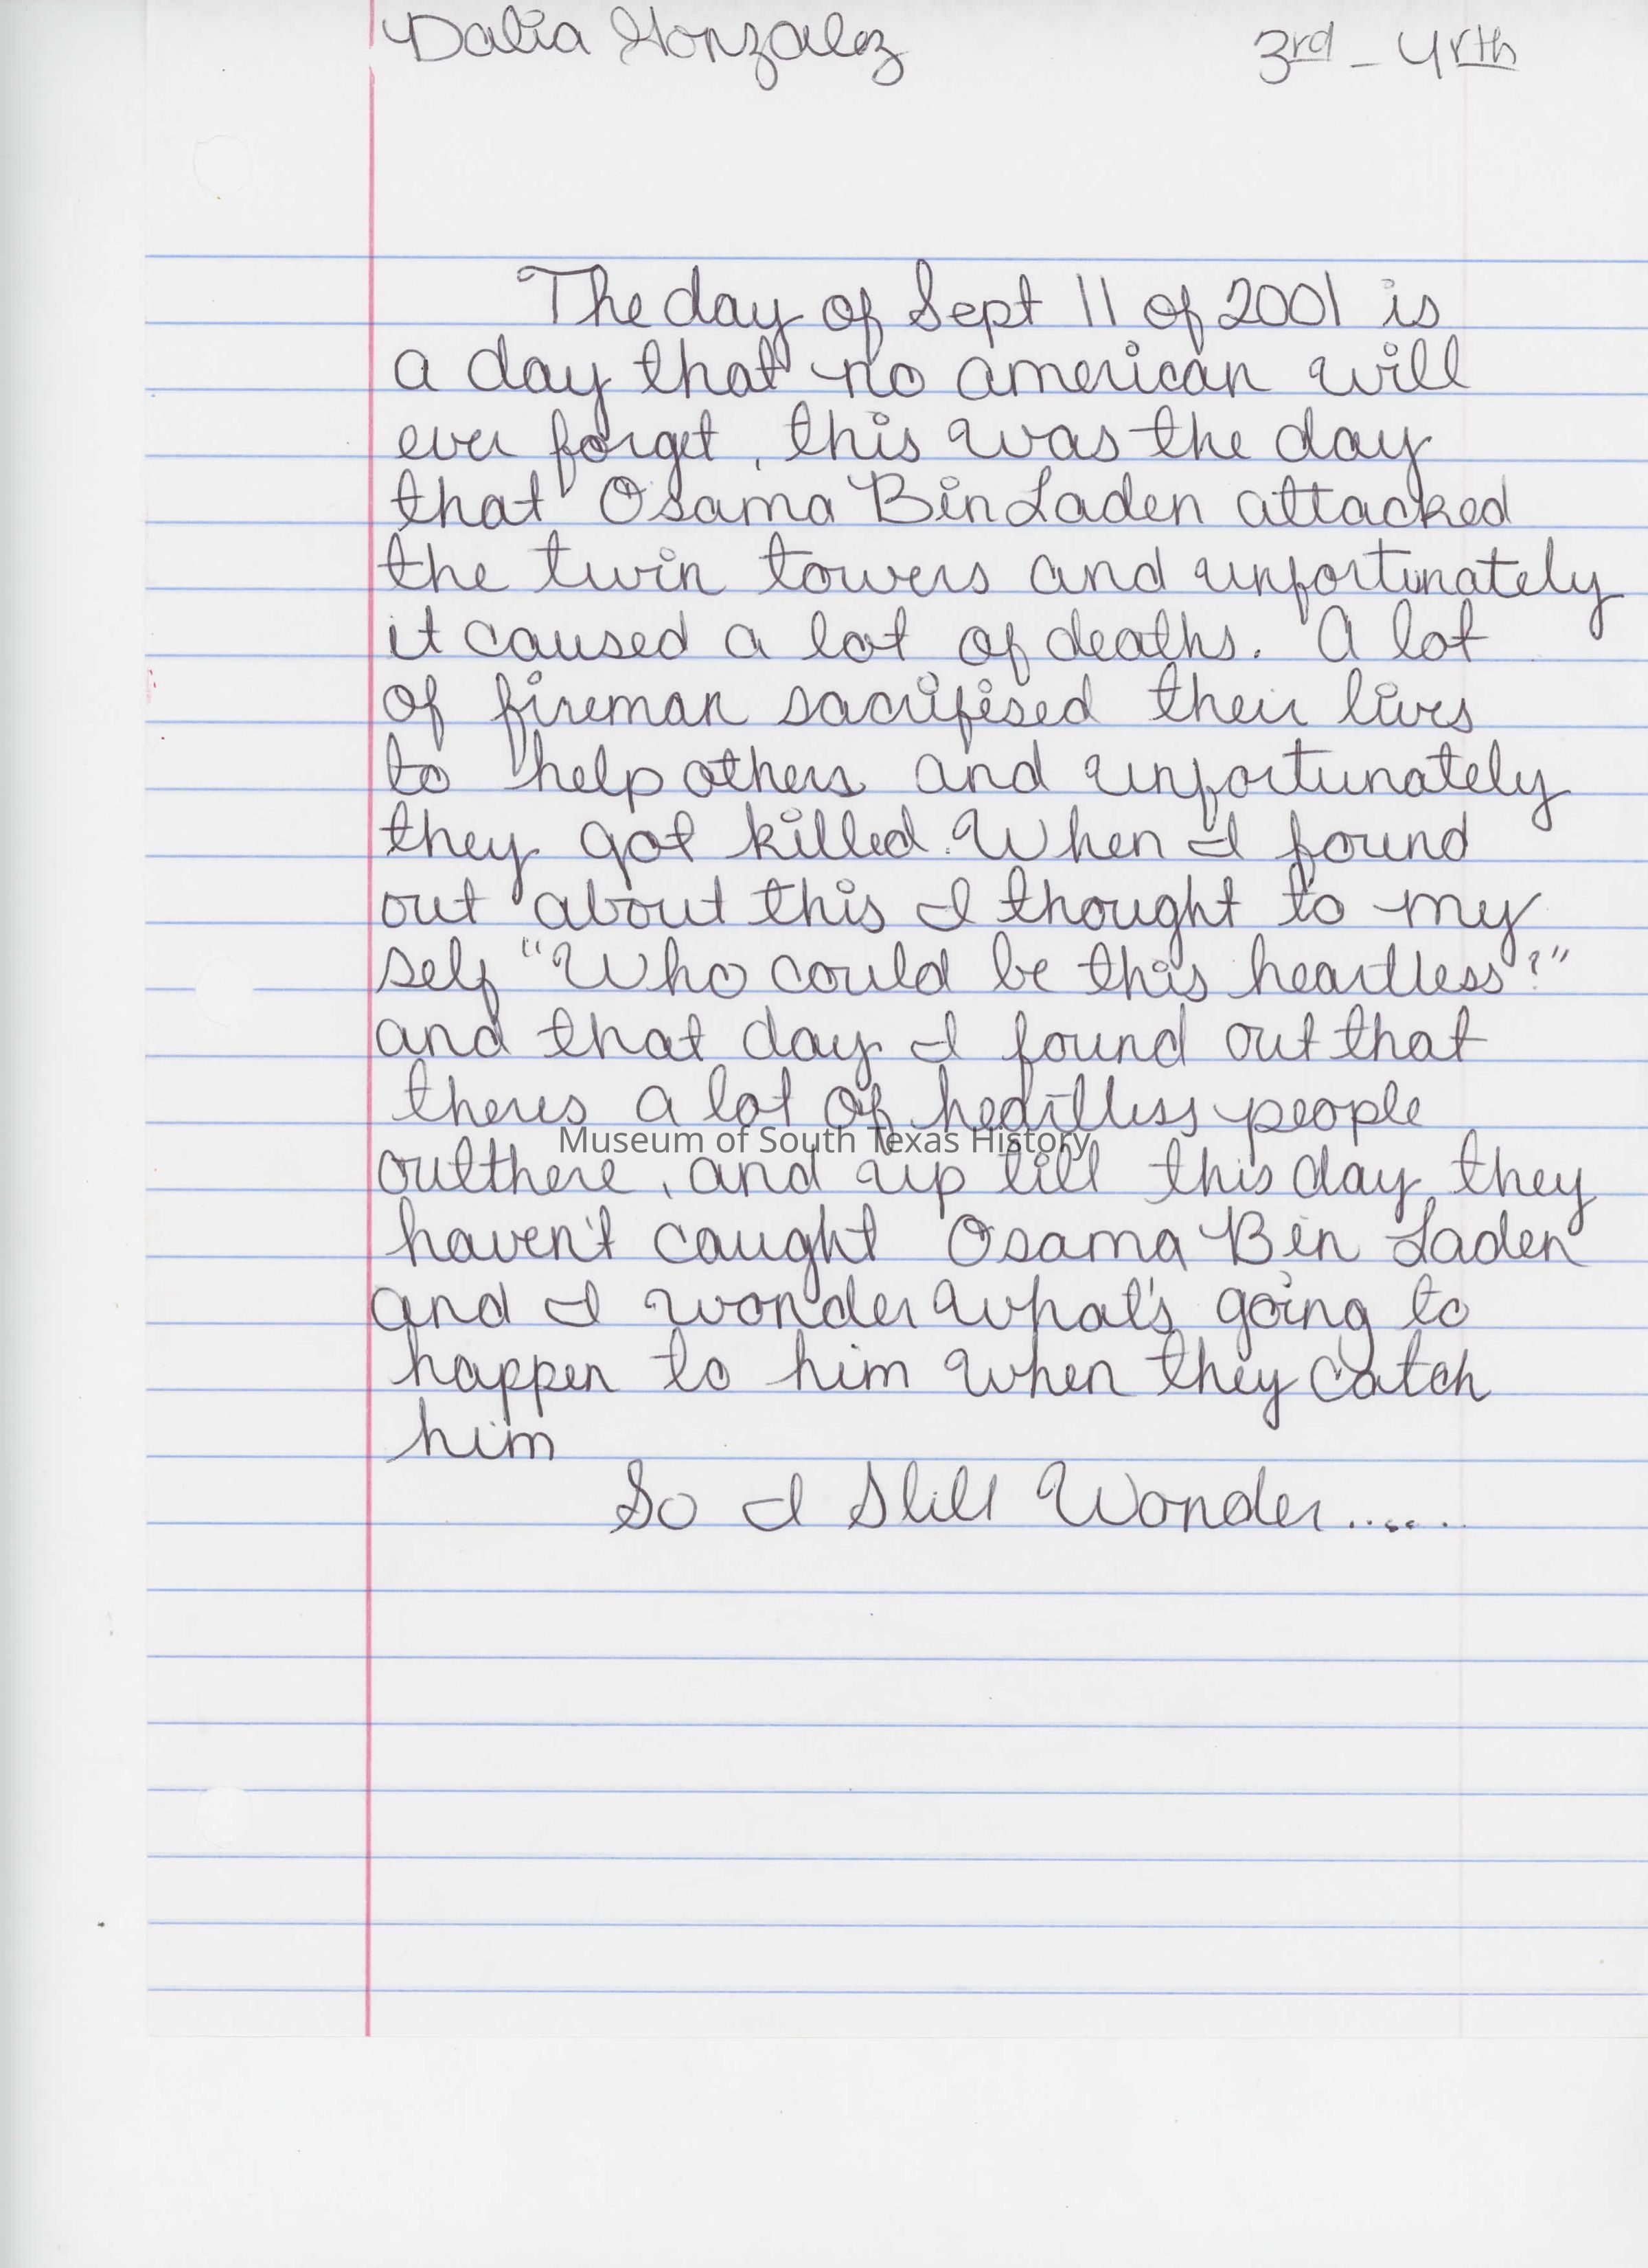 Dalia Gonzalez 3rd - 4rth
The day of Sept 11 of 2001 is
a day that no american will
ever forget, this was the day
that Osama Bin Laden attacked
the twin towers and unfortunately
it caused a lot of deaths. A lot
of fireman sacrifised their lives
to help others and unfortunately
they got killed. When I found
out about this I thought to my
self "Who could be this heartless?"
and that day I found out that
theres a lot of heartless people
outthere, and up till this day they
haven't caught Osama Bin Laden
and I wonder what's going to
happen to him when they catch
him
So I Still Wonder......
Museum of South Texas History